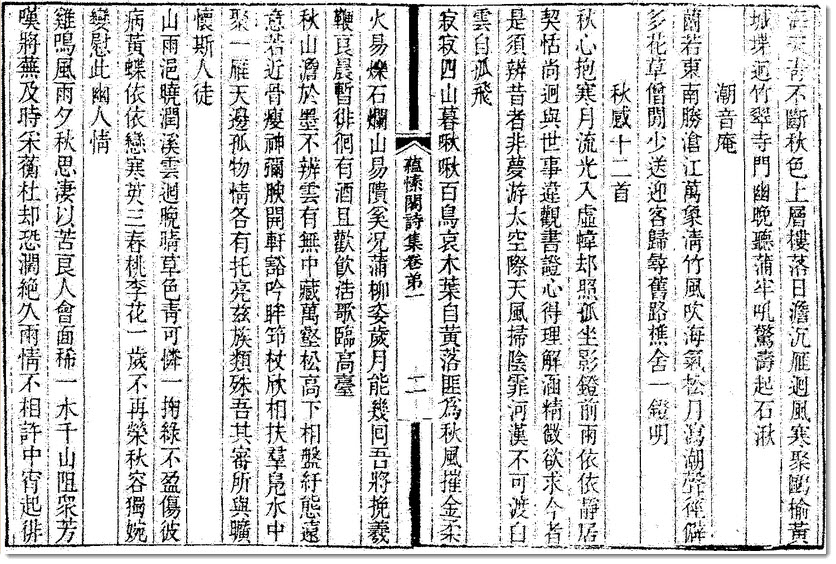 不斷秋色上層樓落日澹沉雁迴風寒聚鷗榆黃
城堞迥竹翠寺門幽晚聽蒲牢吼驚濤起石湫
潮音庵
蘭若東南勝滄江萬象淸竹風吹海氣松月瀉潮聲徑僻
多花草僧閒少送迎客歸尋舊路樵舍一鐙明
秋感十二首
秋心抱寒月流光入虛幃却照孤坐影鐙前兩依依靜居
契恬尚迴與世事違觀書證心得理解涵精微欲求今者
是須辨昔者非夢游太空際天風掃陰霏河漢不可渡白
雲自孤飛
寂寂四山暮啾啾百鳥哀木葉自黃落匪爲秋風摧金柔
蘊愫閣詩集卷第一
二
火易爍石爛山易隤奚況蒲柳姿歲月能幾囘吾將挽羲
鞭良晨暫徘徊有酒且歡飮浩歌臨高臺
秋山澹於墨不辨雲有無中藏萬壑松高下相盤紆態遠
意若近骨瘦神彌腴開軒豁吟眸笻杖欣相扶羣鳧水中
聚一雁天邊孤物情各有托亮茲族類殊吾其審所與曠
懷斯人徒
山雨浥曉潤溪雲迴晚晴草色靑可憐一掬綠不盈傷彼
病黃蝶依依戀寒英三春桃李花一歲不再榮秋容獨婉
孌慰此幽人情
雞鳴風雨夕秋思淒以苦良人會面稀一水千山阻衆芳
嘆將蕪及時采蘅杜却恐澗絶久雨情不相許中宵起徘